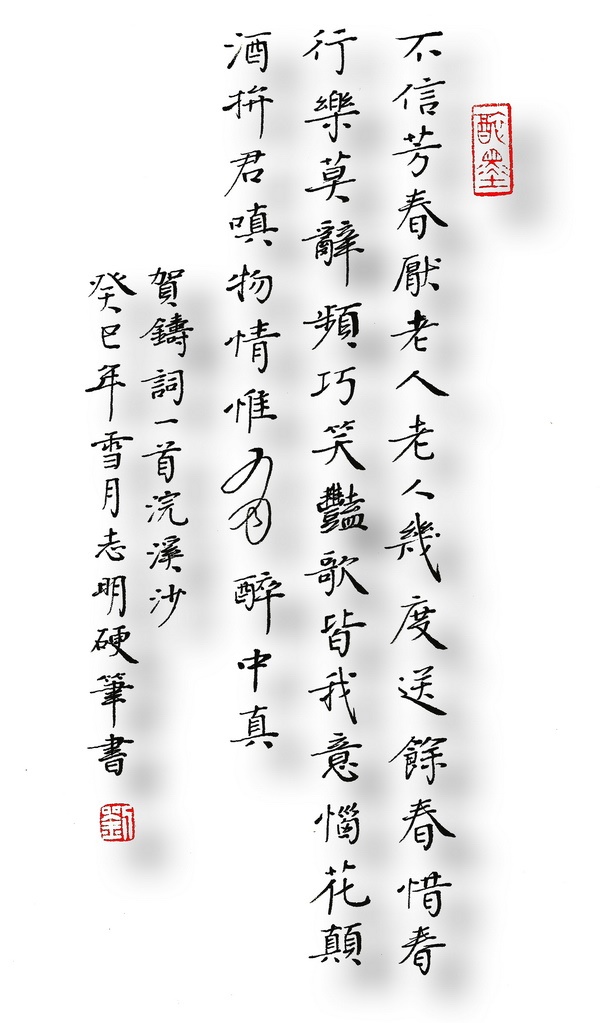 不信芳春厭老人老人幾度送餘春惜春
行樂莫辭頻巧笑豔歌皆我意惱花顛
酒拚君嗔物情惟有醉中真
賀鑄詞一首浣溪沙
癸巳年雪月志明硬筆書
劉